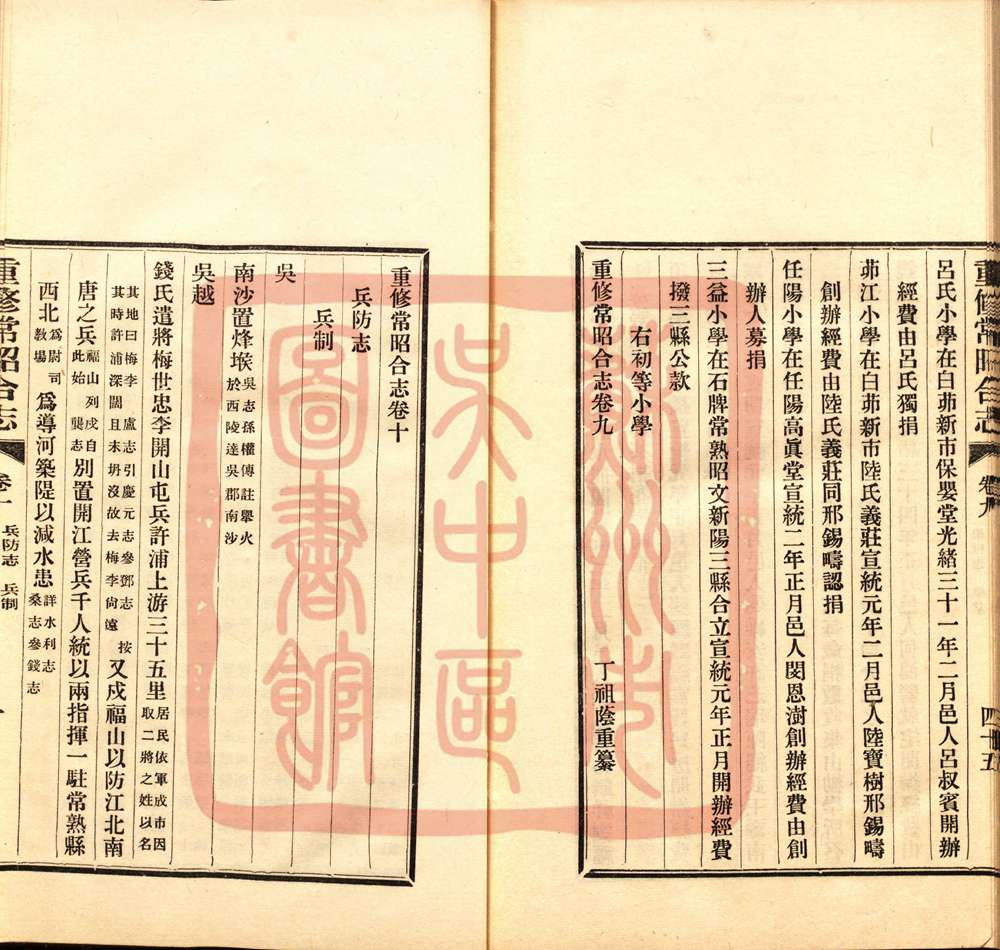 呂氏小學在白茆新市保嬰堂光緒三十一年二月邑人呂叔賓開辦
經費由呂氏獨捐
茆江小學在白茆新市陸氏義莊宣統元年二月邑人陸寶樹邢錫疇
創辦經費由陸氏義莊同邢錫疇認捐
任陽小學在任陽高眞堂宣統二年正月邑人閔恩澍創辦經費由創
辦人募捐
三益小學在石牌常熟昭文新陽三縣合立宣統元年正月開辦經費
撥三縣公款
右初等小學
重修常昭合志卷九
丁祖蔭重纂
重修常昭合志
卷九
四十五
重修常昭合志卷十
兵防志
兵制
吳
南沙置烽堠吳志孫權傳註舉火於西陵達吳郡南沙
吳越
錢氏遣將梅世忠李開山屯兵許浦上游三十五里居民依軍成市因取二將之姓以名
其地曰梅李盧志引慶元志參鄧志按其時許浦深闊且未坍沒故去梅李尙遠又戍福山以防江北南
唐之兵福山列戍自此始龔志別置開江營兵千人統以兩指揮一駐常熟縣
西北爲尉司敎場爲導河築隄以減水患詳水利志桑志參錢志
重修常昭合志
卷十
兵防志
兵制
蘇州市
吳中區
圖書館